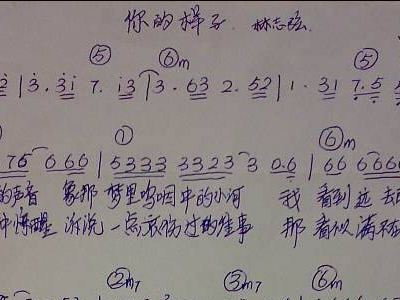 你的样子 林志炫
⑤ ⑥m ⑤
2 | 3·31 7· 13 | 3·63 2·52 | 1·31 7·5 5
① ⑥m
76 066 | 5333 3323 3 0·6 | 66 6666
的声音 象那 梦里呜咽中的小河 我 看到远去
中惊醒 诉说一点哀伤过的往事 那 看似满不在
②m7 ③m7 ⑥m